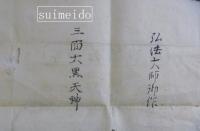 suimeido
弘法大師御作
三面大黒天神